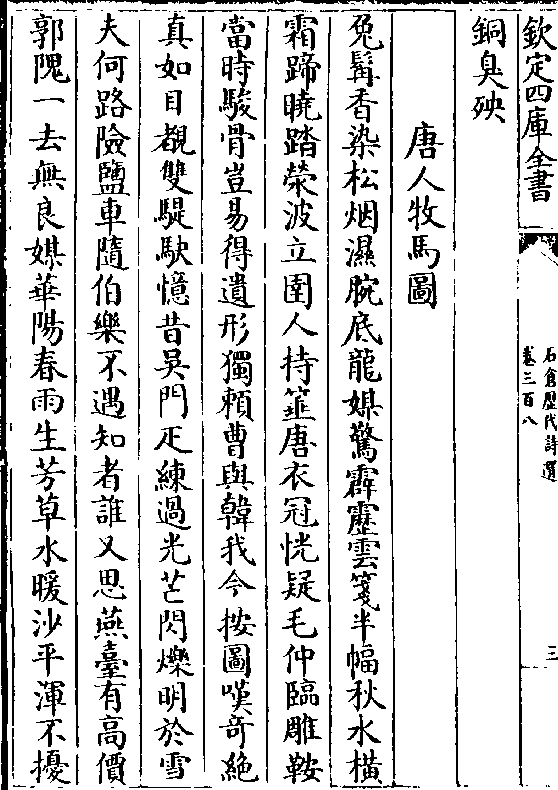 欽定四庫全書
石倉歷代詩選
卷三百八
三
銅臭殃
唐人牧馬圖
兔髯香染松烟濕腕底龍媒驚霹靂雲箋半幅秋水横
霜蹄曉踏滎波立圉人持箠唐衣冠恍疑毛仲臨雕鞍
當時駿骨豈易得遺形獨賴曹與韓我今按圖嘆奇絶
真如目覩雙騠駃憶昔吳門疋練過光芒閃爍明於雪
夫何路險鹽車隨伯樂不遇知者誰又思燕臺有高價
郭隗一去無良媒華陽春雨生芳草水暖沙平渾不擾